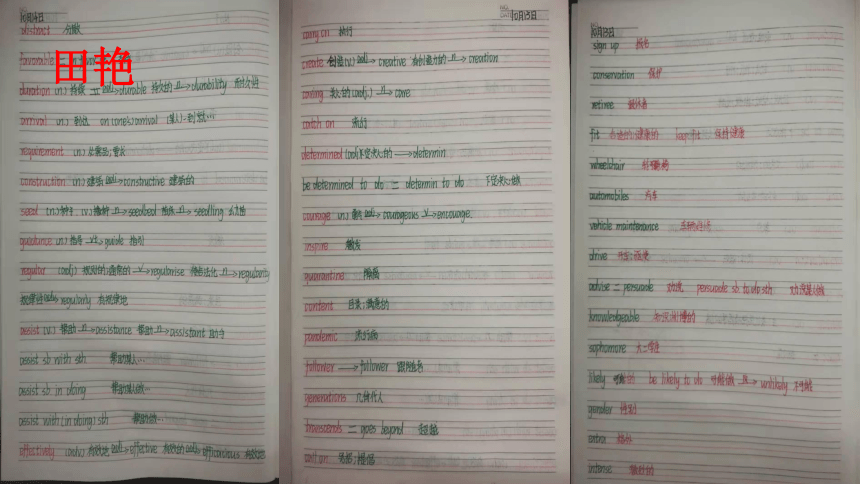 10月14日
distract 分散
favourable =
田艳
duration (n.) 持续 durable 持久的 durability 耐久性
arrival (n.) 到达 on one's arrival
requirement (n.) 必需品;要求
construction (n.) 建造 constructive 建设的
seed (n.) 种子 (v.) 播种 seedbed seedling 幼苗
guidance (n.) 指导 guide 指引
regular (adj.) 规则的;通常的 regularise 使合法化 regularity
规律性 regularly 有规律地
assist (v.) 帮助 assistance 帮助 assistant 助手
assist sb with sth 帮助某人…
assist sb in doing 帮助某人做…
assist with (in doing) sth 帮助做…
effectively (adv.) 有效地 effective 有效的 efficacious
10月15日
carry on 执行
create 创造(v.) creative 有创造力的 creation
caring 关心的(adj.) care
catch on 流行
determined (adj.) 下定决心的 determin
be determined to do = determin to do 下定决心做
courage (n.) 勇气 courageous encourage
inspire 激发
quarantine 隔离
content 目录;满意的
pandemic 流行病
follower follower 跟随者
generations 几代人
transcends = goes beyond 超越
call on 号召;拜访
10月15日
sign up 报名
conservation 保护
retiree 退休者
fit 合适的;健康的 keep fit 保持健康
wheelchair 轮椅
automobiles 汽车
vehicle maintenance 车辆维修
drive 开车;驱使
advise = persuade 劝说 persuade sb to do sth 劝说某人做
knowledgeable 知识渊博的
sophomore 大二学生
likely 可能的 be likely to do 可能做 unlikely 不可能
gender 性别
extra 额外
intense 强烈的